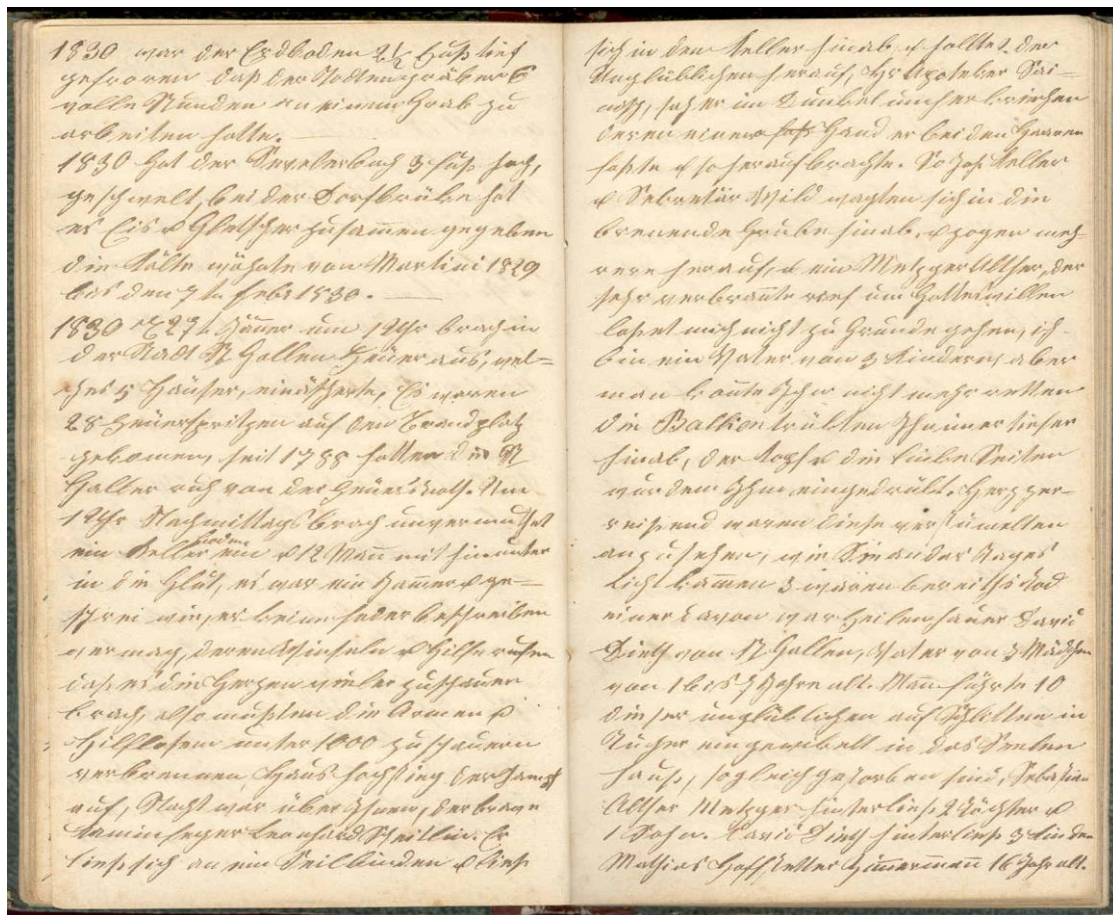 1830 war der Erdboden 2½ Fuß tief
gefroren daß der Todtengräber 6
volle Stunden an einem Grab zu
arbeiten hatte.
1830 hat der Sevelerbach 3 Fuß hoch,
geschwelt, bei der Dorfbrüke hat
es Eis u Gletscher zusamen gegeben
die Kälte währte von Martini 1829
bis den 7ten Febr 1830.
1830 den 27t Jäner um 1 Uhr brach in
der Stadt St Gallen Feüer aus, wel-
ches 5 Häuser, einäscherte, Es waren
28 Feüerspritzen auf den Brandplatz
gekomen, seit 1788 hatten die St
Galler ruh von der Feüersnoth. Um
1 Uhr Nachmittags brach unvermuthet
ein Kellerboden ein u 12 Mañ mit hinunter
in die Glut, es war ein Jam̃er u ge-
schrei wie, es keine feder beschreiben
vermag, deren Winseln u Hilferufen
das es die Herzen vieler zuschauer
brach, also mußten die Armen u
Hilflosen unter 1000 zuschauern
verbrennen, Haus hoch stieg der Dampf
auf, Nacht war über Ihnen, der brave
Kaminfeger Leonhard Scheitlin. Er
ließ sich an ein Seil binden u ließ
sich in den Keller hinab, u hollte der
Unglüklichen herauf, Hr Apoteker
sah er im Dunkel umher kriechen
deren einer Hand er bei den Haaren
faßte u so herauf brachte. So Keller
u Sekretär Wild wagten sich in die
brenende Grube hinab, u zogen meh-
rere herauf, u ein Metzger Alther, der
sehr verbrañte rief um Gotteswillen
laßet mich nicht zu Grunde gehen, ich
bin ein Vater von 3 Kindern, aber
man koñte Ihn nicht mehr retten
die Balken trükten Ihn imer tiefer
hinab, der Kopf u die linke Seiten
wurden Ihm eingedrükt. Herz zer-
reißend waren diese verstümelten
anzusehen, wie Sie an des Tages
licht kam̃en 3 waren bereits Tod
einer davon war Feilenhauer David
Dieth von St Gallen, Vater von 3 Mädchen
von 1 bis 7 Jahre alt. Mañ führte 10
dieser unglüklichen auf Schlitten in
Tücher eingewikelt in das Seelen
haus, sogleich gestorben sind, Sebastian
Alther Metzger hinterließ 2 Töchter u
1 Sohn. David Dieth hinterließ 3 Kinder
Mathias Hofstetter Zimermañ 16 Jahr alt.